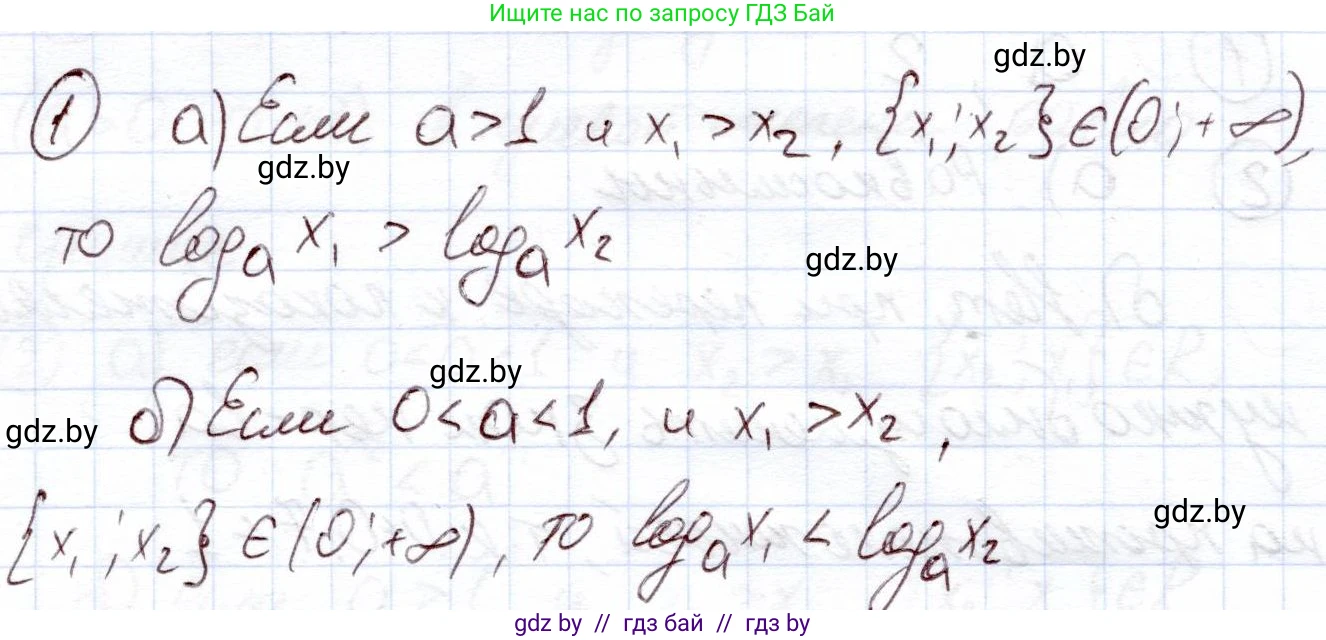 Ищите нас по запросу ГДЗ Бай
gdz.by
① а) Если a > 1 и x₁ > x₂, {x₁; x₂} ∈ (0; +∞),
gdz.by
то logₐ x₁ > logₐ x₂
gdz.by
gdz.by
б) Если 0 < a < 1, и x₁ > x₂,
gdz.by
{x₁; x₂} ∈ (0; +∞), то logₐ x₁ < logₐ x₂
gdz.by
gdz.by // гдз бай // гдз by